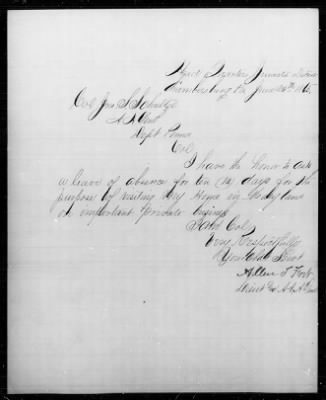 Head Quarters Juniata District
Chambersburg Pa June 26th 1865
Col Jno S Schultze
A A Genl
Dept Penna
Col
I have the honor to ask
a leave of absence for ten (10) days for the
purpose of visiting my Home in Maryland
on important private business
I am Col
Very Respectfully
Your Obdt Servt
Allen
Lieut &